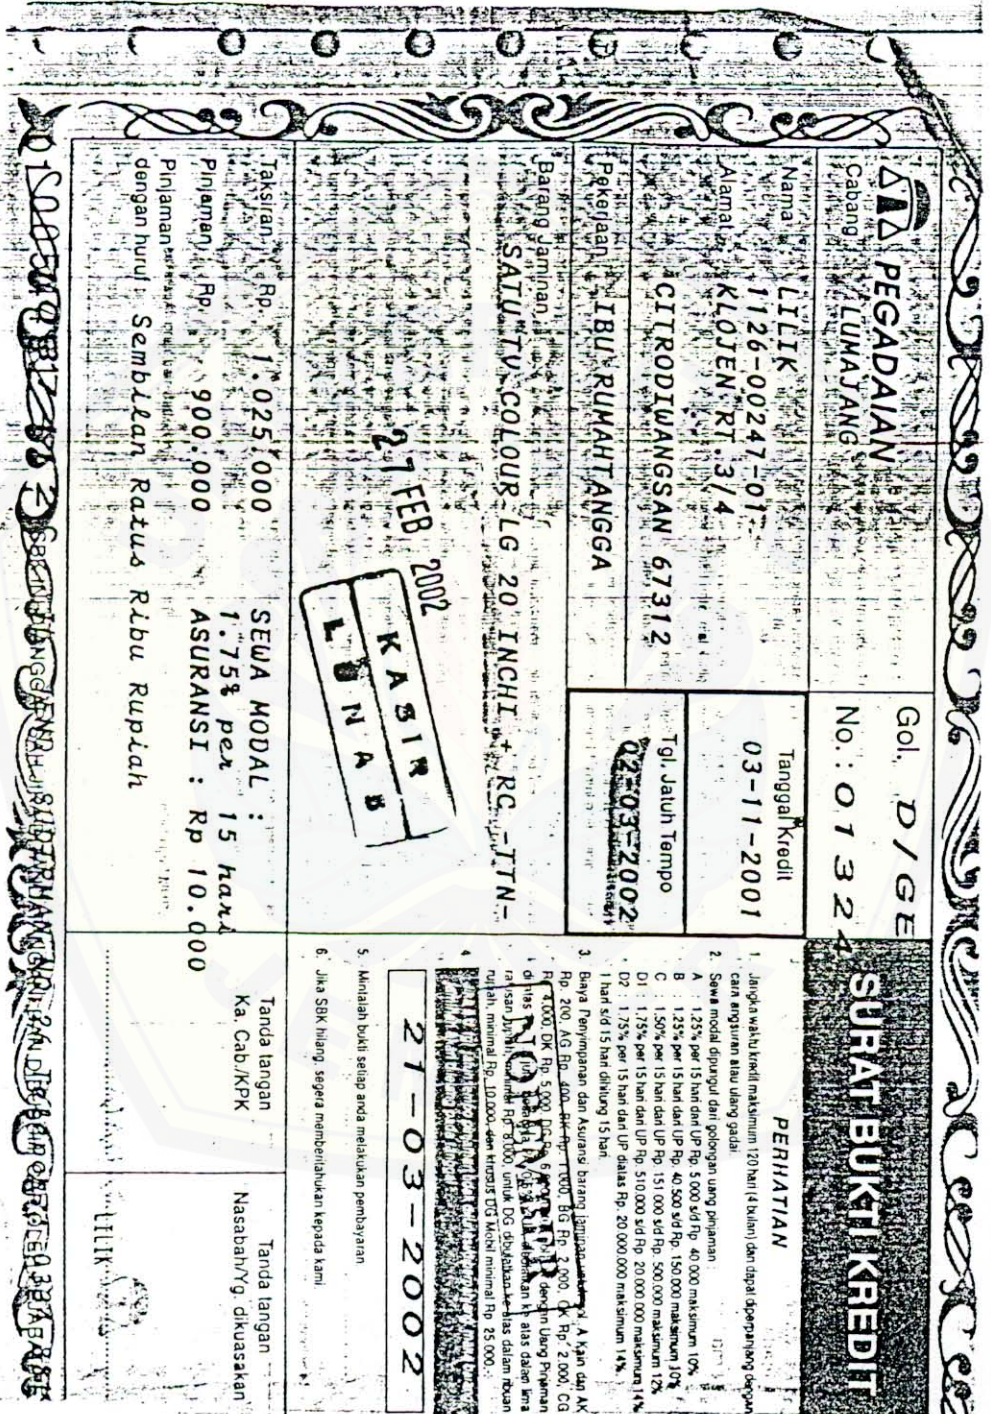 PEGADAIAN
Cabang : LUMAJANG
Nama : LILIK
1126-00247-01
Alamat : KLOJEN RT.3/4
CITRODIWANGSAN 67312
Pekerjaan : IBU RUMAHTANGGA
Gol. D/GE
No. : 01324
Tanggal Kredit
03-11-2001
Tgl. Jatuh Tempo
02-03-2002
Barang Jaminan :
SATU TV COLOUR LG 20 INCHI + RC -TTN-
27 FEB 2002
KASIR
LUNAS
Taksiran : Rp. 1.025.000
Pinjaman : Rp. 900.000
Pinjaman
dengan huruf : Sembilan Ratus Ribu Rupiah
SEWA MODAL :
1.75% per 15 hari
ASURANSI : Rp 10.000
SURAT BUKTI KREDIT
PERHATIAN
1. Jangka waktu kredit maksimum 120 hari (4 bulan) dan dapat diperpanjang dengan
cara angsuran atau ulang gadai.
2. Sewa modal dipungut dari golongan uang pinjaman :
A : 1.25% per 15 hari dari UP Rp. 5 000 s/d Rp. 40 000 maksimum 10%
B : 1.25% per 15 hari dari UP Rp. 40 500 s/d Rp. 150 000 maksimum 10%
C : 1.50% per 15 hari dari UP Rp. 151 000 s/d Rp. 500.000 maksimum 12%
D1 : 1.75% per 15 hari dari UP Rp. 510.000 s/d Rp. 20 000 000 maksimum 14%
D2 : 1.75% per 15 hari dari UP diatas Rp. 20 000.000 maksimum 14%.
1 hari s/d 15 hari dihitung 15 hari.
3. Biaya Penyimpanan dan Asuransi barang jaminan A Kain dan AK
Rp. 200, AG Rp. 400, BK Rp. 1.000, BG Rp. 2.000, CK Rp. 2.000, CG
Rp. 4.000, DK Rp. 5.000, DG Rp. 6 dengan Uang Pinjaman
diatas ke atas dalam lima
ratusan rupiah, minimal Rp. 8.000, untuk DG dibulatkan ke atas dalam ribuan
rupiah, minimal Rp. 10.000, dan khusus DG Mobil minimal Rp. 25 000,-
4
21-03-2002
5. Mintalah bukti setiap anda melakukan pembayaran.
6. Jika SBK hilang, segera memberitahukan kepada kami.
Tanda tangan
Ka. Cab./KPK
Tanda tangan
Nasabah/Yg. dikuasakan
LILIK